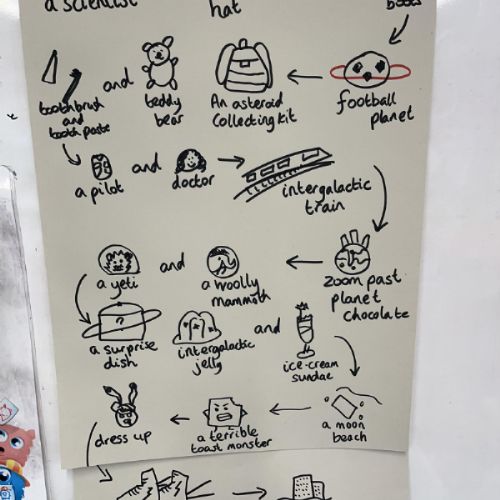 a scientist
hat
books
and
toothbrush
and
tooth paste
teddy
bear
An asteroid
Collecting kit
football
planet
a pilot
and
doctor
intergalactic
train
a yeti
and
a woolly
mammoth
zoom past
planet
chocolate
a surprise
dish
intergalactic
jelly
and
ice-cream
sundae
dress up
a terrible
toast monster
a moon
beach